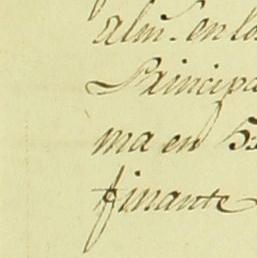 alm. en lo
Principa
ma en 53
finante